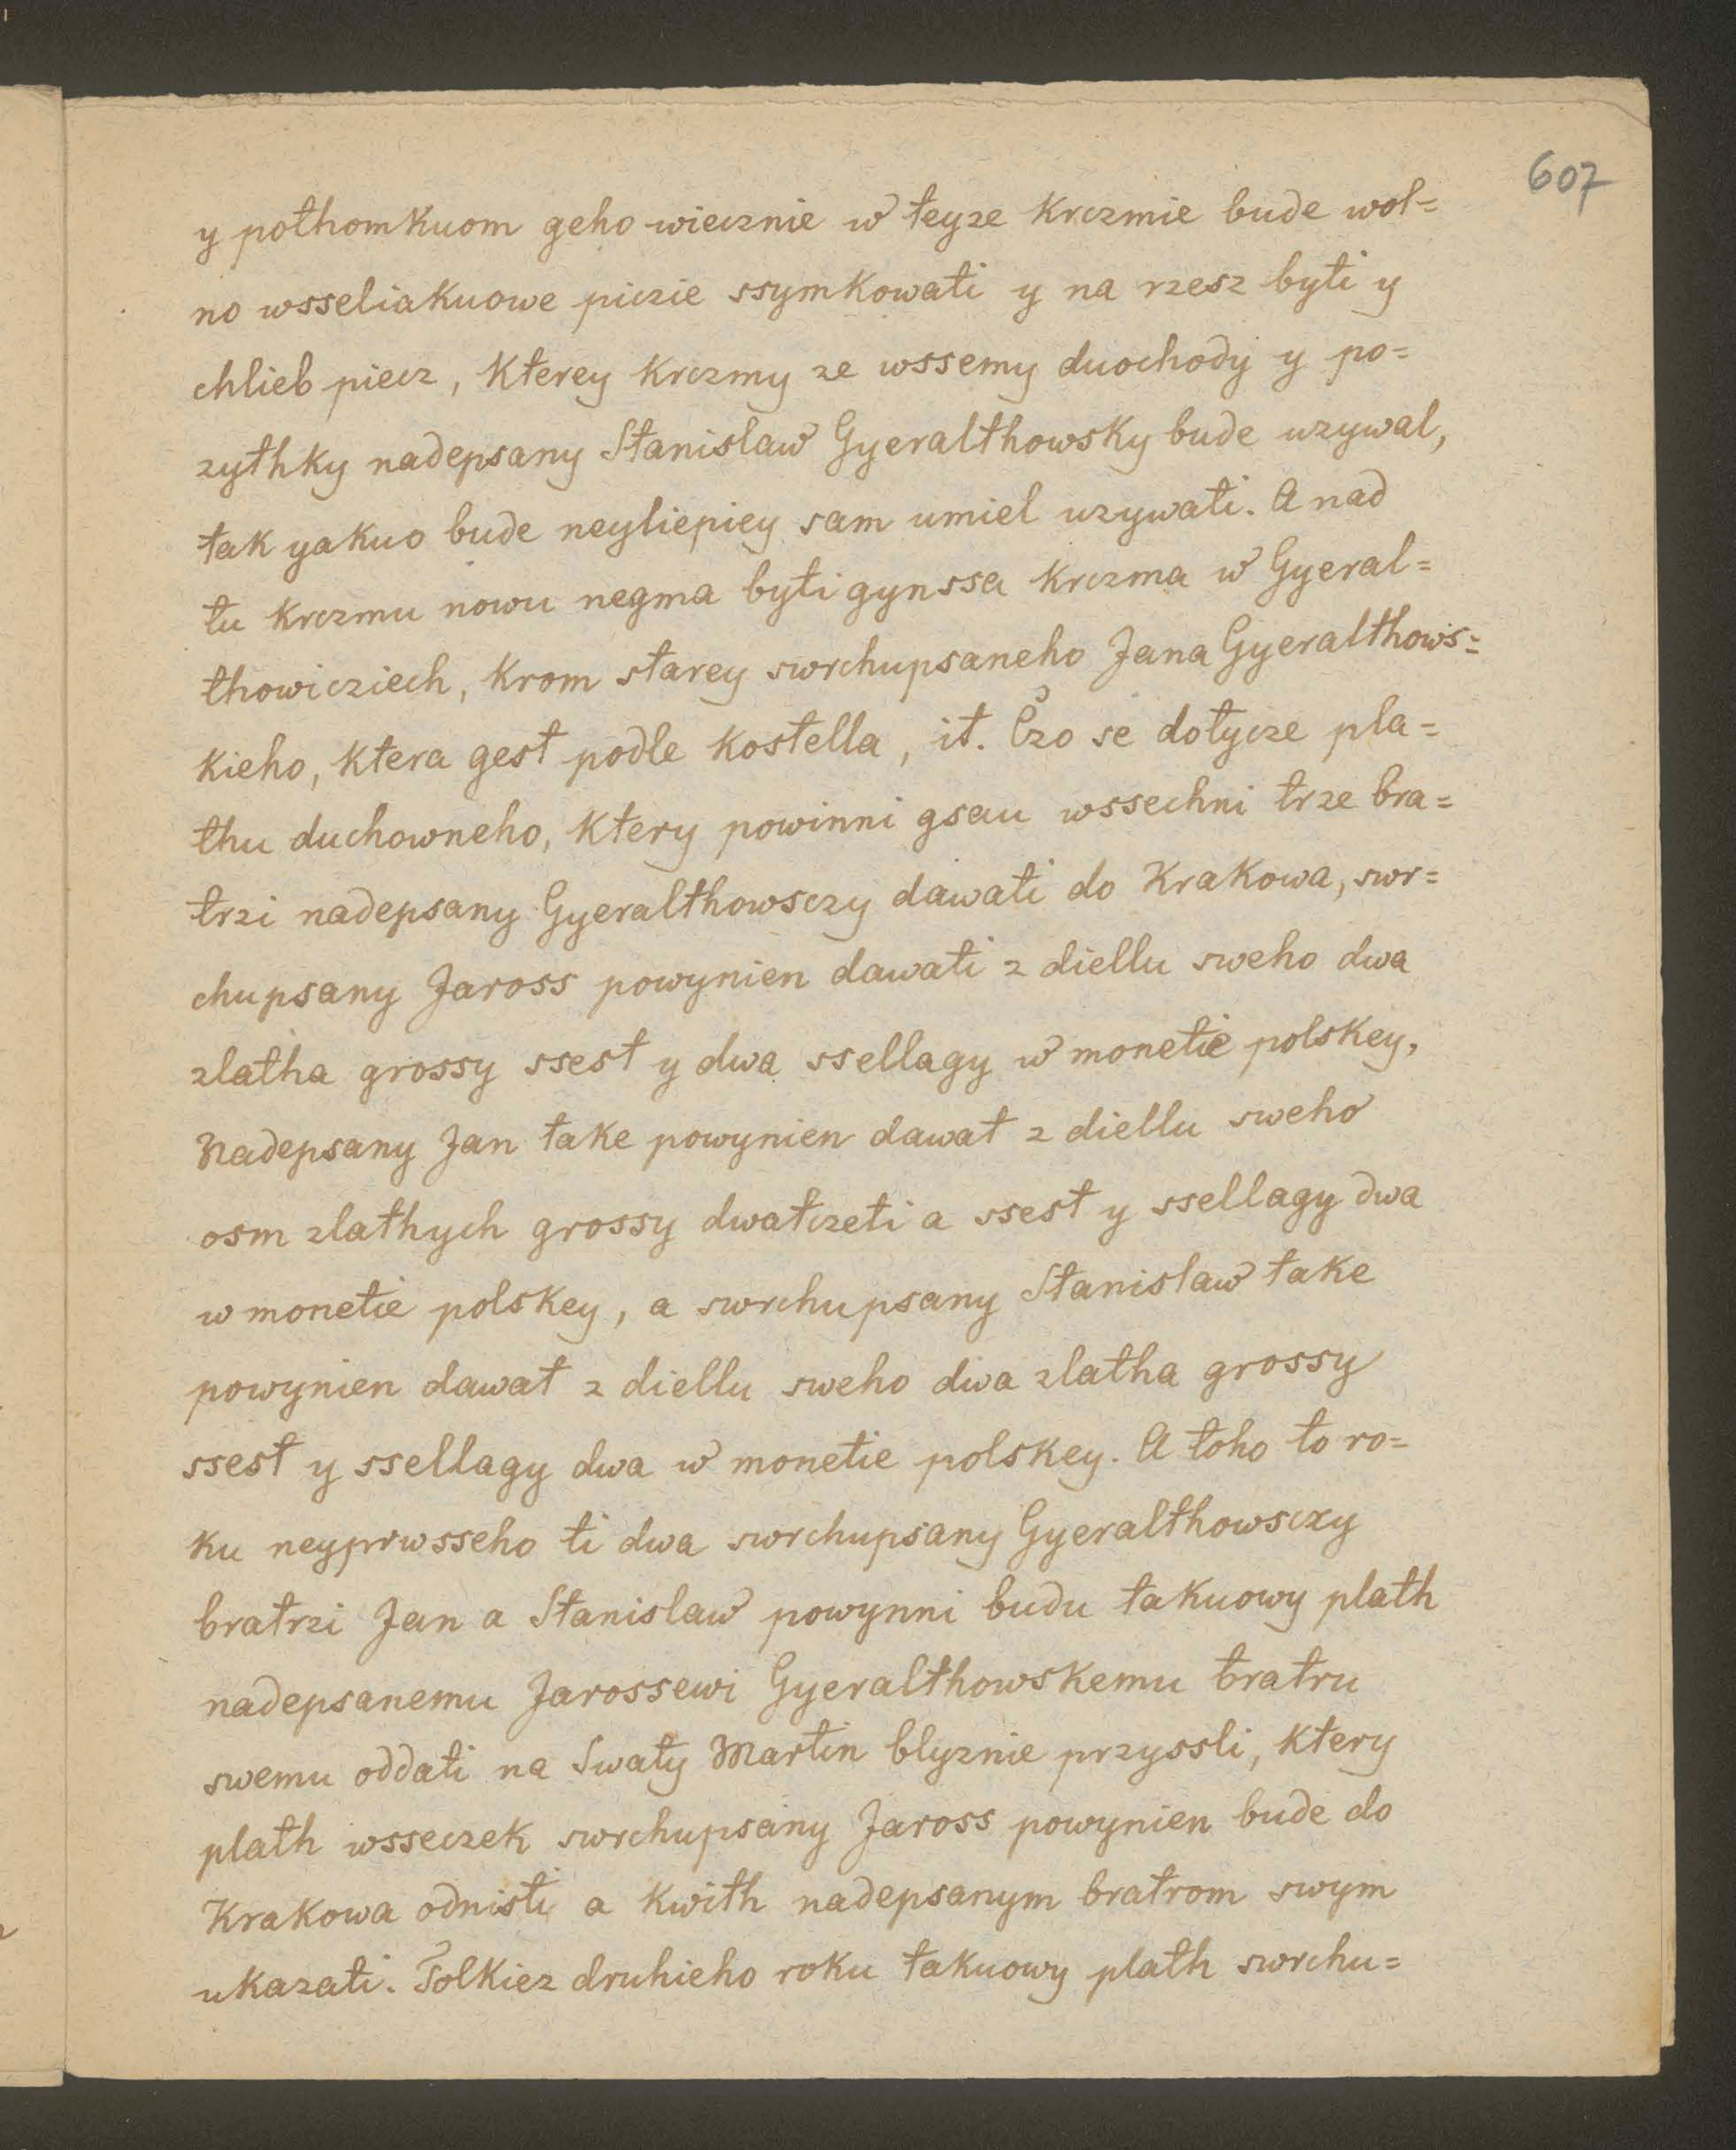 607
y pothomkuom geho wiecznie w teyze krczmie bude wol=
no wsseliakuowe piczie ssymkowati y na rzesz byti y
chlieb piecz, kterey krczmy ze wssemy duochody y po=
zythky nadepsany Stanislaw Gyeralthowsky bude uzywal,
tak yakuo bude neyliepiey sam umiel uzywati. A nad
tu krczmu nowu negma byti gynssa krczma w Gyeral=
thowicziech, krom starey swrchupsaneho Jana Gyeralthows=
kieho, ktera gest podle kostella, it. Czo se dotycze pla=
thu duchowneho, ktery powinni gsau wssechni trze bra=
trzi nadepsany Gyeralthowsczy dawati do Krakowa, swr=
chupsany Jaross powynien dawati z diellu sweho dwa
zlatha grossy ssest y dwa ssellagy w monetie polskey,
Nadepsany Jan take powynien dawat z diellu sweho
osm zlathych grossy dwatczeti a ssest y ssellagy dwa
w monetie polskey, a swrchupsany Stanislaw take
powynien dawat z diellu sweho dwa zlatha grossy
ssest y ssellagy dwa w monetie polskey. A toho to ro=
ku neyprwsseho ti dwa swrchupsany Gyeralthowsczy
bratrzi Jan a Stanislaw powynni budu takuowy plath
nadepsanemu Jarossewi Gyeralthowskemu bratru
swemu oddati na Swaty Martin blyznie przyssli, ktery
plath wsseczek swrchupsany Jaross powynien bude do
Krakowa odnisti a kwith nadepsanym bratrom swym
ukazati. Tolkiez druhieho roku takuowy plath swrchu=